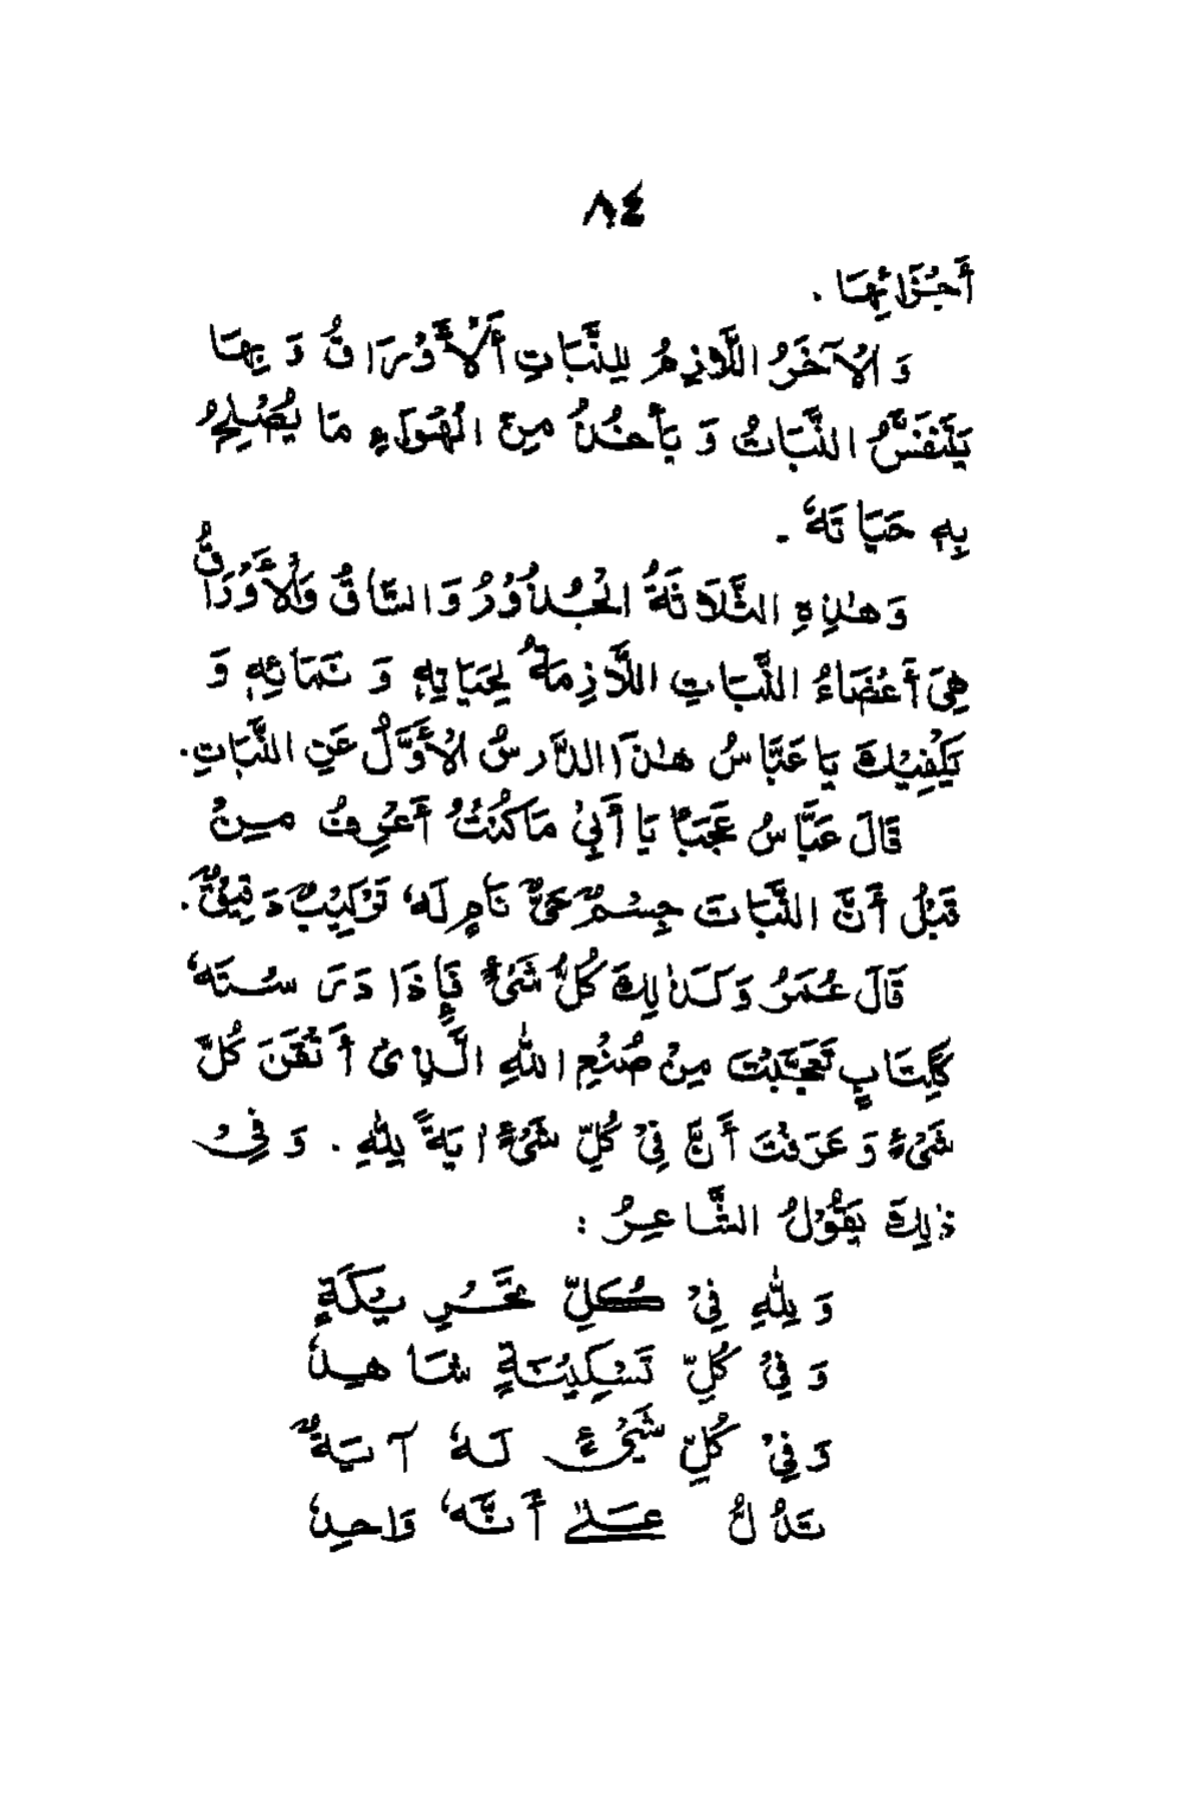 ٨٤
أَجْزَائِهَا .
وَ الْآخَرُ اللَّازِمُ لِلنَّبَاتِ أَلْأَوْرَاقُ وَ بِهَا
يَتَنَفَّسُ النَّبَاتُ وَ يَأْخُذُ مِنَ الْهَوَاءِ مَا يُصْلِحُ
بِهٖ حَيَاتَهٗ .
وَهٰذِهِ الثَّلَاثَةُ الْجُذُوْرُ وَالسَّاقُ وَالْأَوْرَاقُ
هِيَ أَعْضَاءُ النَّبَاتِ اللَّازِمَةُ لِحَيَاتِهٖ وَ نَمَائِهٖ وَ
يَكْفِيْكَ يَا عَبَّاسُ هٰذَا الدَّرسُ الْأَوَّلُ عَنِ النَّبَاتِ.
قَالَ عَبَّاسُ عَجَبًا يَا أَبِيْ مَا كُنْتُ أَعْرِفُ مِنْ
قَبْلُ أَنَّ النَّبَاتَ جِسْمٌ حَيٌّ نَامٍ لَهٗ تَرْكِيْبٌ دَقِيْقٌ.
قَالَ عُمَرُ وَكَذٰلِكَ كُلُّ شَيْءٍ فَإِذَا دَرَسْتَهٗ
كَكِتَابٍ تَعَجَّبْتَ مِنْ صُنْعِ اللّٰهِ الَّذِىْ أَتْقَنَ كُلَّ
شَيْءٍ وَ عَرَفْتَ أَنَّ فِيْ كُلِّ شَيْءٍ اٰيَةً لِلّٰهِ . وَ فِيْ
ذٰلِكَ يَقُوْلُ الشَّاعِرُ :
وَ لِلّٰهِ فِيْ كُلِّ تَحْرِيْكَةٍ
وَ فِيْ كُلِّ تَسْكِيْنَةٍ شَاهِدٗ
وَ فِيْ كُلِّ شَيْءٍ لَهٗ آيَةٌ
تَدُلُّ عَلٰى أَنَّهٗ وَاحِدٗ